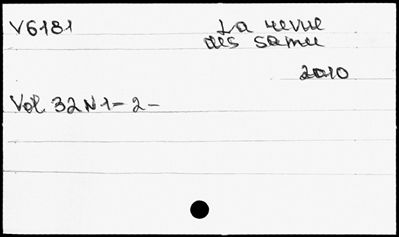 V6181 La revue
des samu
2010
Vol 32 N 1 = 2 -